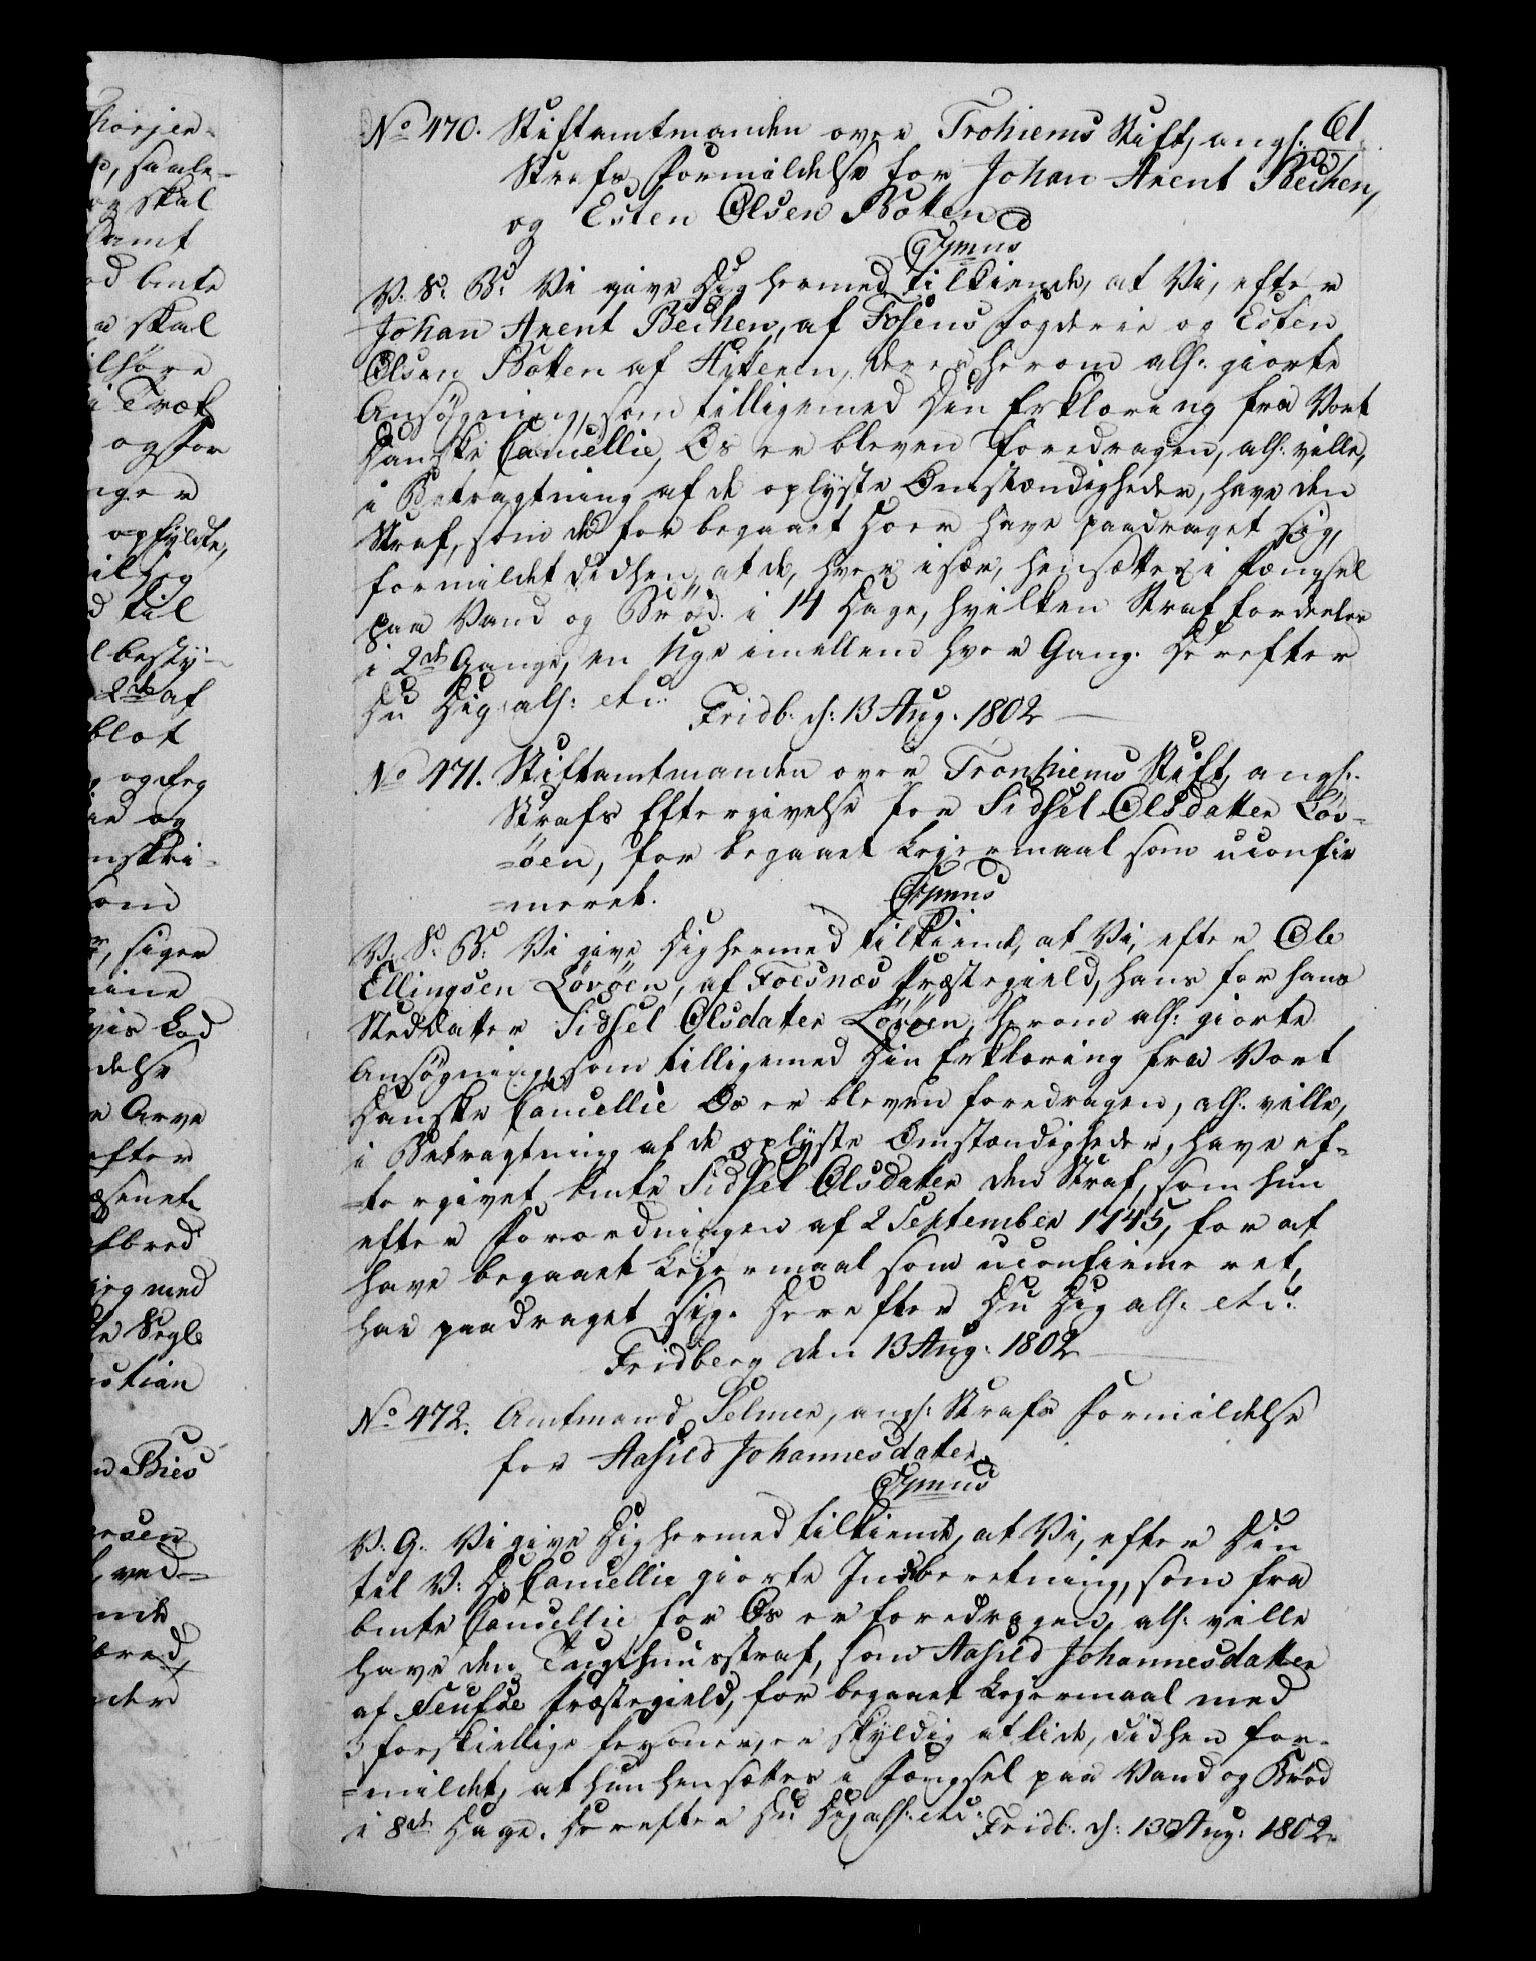 61
No 470. Stiftamtmanden over Trohiems Stift, angs:
Strafs Formildelse for Johan Arent Beichen,
og Esten Olsen Botten
C7mus
V. S. B: Vi give Dig hermed tilkiende, at Vi, efter
Johan Arent Beichen, af Fosens Fogderie og Esten
Olsen Botten af Hitteren, deres herom alh: giorte
Ansøgning, som tilligemed Din Erklæring fra Vort
Danske Cancellie, Os er bleven foredragen, alh: ville,
i Betragtning af de oplyste Omstændigheder, have den
Straf, som de for begaaet Hoer have paadraget sig,
formildet didhen, at de, hver især, hensættes i Fængsel
paa Vand og Brød i 14 Dage, hvilken Straf fordeeles
i 2de Gange, en Uge imellem hver Gang. Derefter
Du Dig alh: etc:
Fridb: d: 13 Aug. 1802
No 471. Stiftamtmanden over Tronhiems Stift, angs:
Strafs Eftergivelse for Sidsel Olsdatter Löv-
=öen, for begaaet Leiermaal som uconfir
=meret.
C7mus
V. S. B: Vi give Dig hermed tilkiende, at Vi, efter Ole
Ellingsen Lövöen, af Foesnæs Præstegield, hans for hans
Steddatter Sidsel Olsdatter Lövöen, herom alh: giorte
Ansøgning, som tilligemed Din Erklæring fra Vort
Danske Cancellie Os er bleven foredragen, alh: ville,
i Betragtning af de oplyste Omstændigheder, have ef-
=tergivet bmte Sidsel Olsdatter den Straf, som hun
efter Forordningen af 2 September 1745, for at
have begaaet Leiermaal som uconfirmeret,
har paadraget sig. Derefter Du Dig alh: etc:
Fridberg den 13 Aug: 1802
No 472. Amtmand Selmer, angs: Strafs Formildelse
for Aasild Johannesdatter
C7mus
V. G. Vi give Dig hermed tilkiende, at Vi, efter Din
til V: D: Cancellie giorte Indberetning, som fra
bmte Cancellie for Os er foredragen, alh: ville
have den Tugthuusstraf, som Aasild Johannesdatter
af Præstegield, for begaaet Leiermaal med
3 forskiellige Personer, er skyldig at lide, didhen for-
=mildet, at hun hensættes i Fængsel paa Vand og Brød
i 8te Dage. Derefter Du Dig alh: etc: Fridb: d: 13 Aug: 1802.